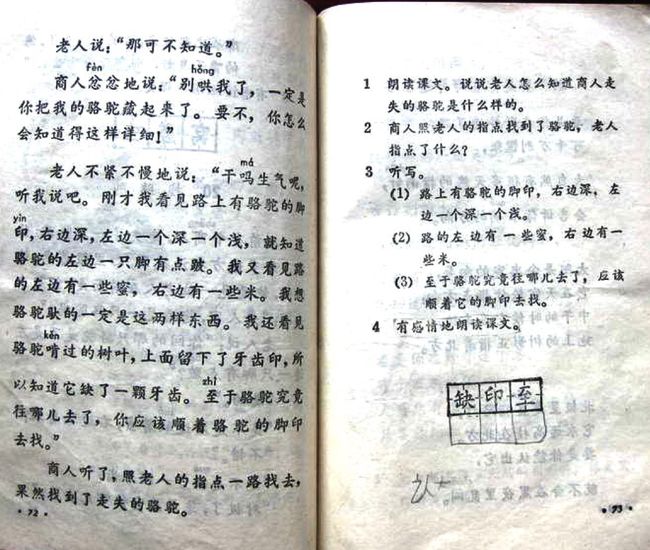 老人说：“那可不知道。”
fèn hǒng
商人忿忿地说：“别哄我了，一定是
你把我的骆驼藏起来了。要不，你怎么
会知道得这样详细！”
má
老人不紧不慢地说：“干吗生气呢，
听我说吧。刚才我看见路上有骆驼的脚
yìn
印，右边深，左边一个深一个浅，就知道
骆驼的左边一只脚有点跛。我又看见路
的左边有一些蜜，右边有一些米。我想
骆驼驮的一定是这两样东西。我还看见
kěn
骆驼啃过的树叶，上面留下了牙齿印，所
以知道它缺了一颗牙齿。至于骆驼究竟
zhì
往哪儿去了，你应该顺着骆驼的脚印
去找。”
商人听了，照老人的指点一路找去，
果然找到了走失的骆驼。
·72·
1 朗读课文。说说老人怎么知道商人走
失的骆驼是什么样的。
2 商人照老人的指点找到了骆驼，老人
指点了什么？
3 听写。
(1) 路上有骆驼的脚印，右边深，左
边一个深一个浅。
(2) 路的左边有一些蜜，右边有一
些米。
(3) 至于骆驼究竟往哪儿去了，应该
顺着它的脚印去找。
4 有感情地朗读课文。
缺印至
·73·